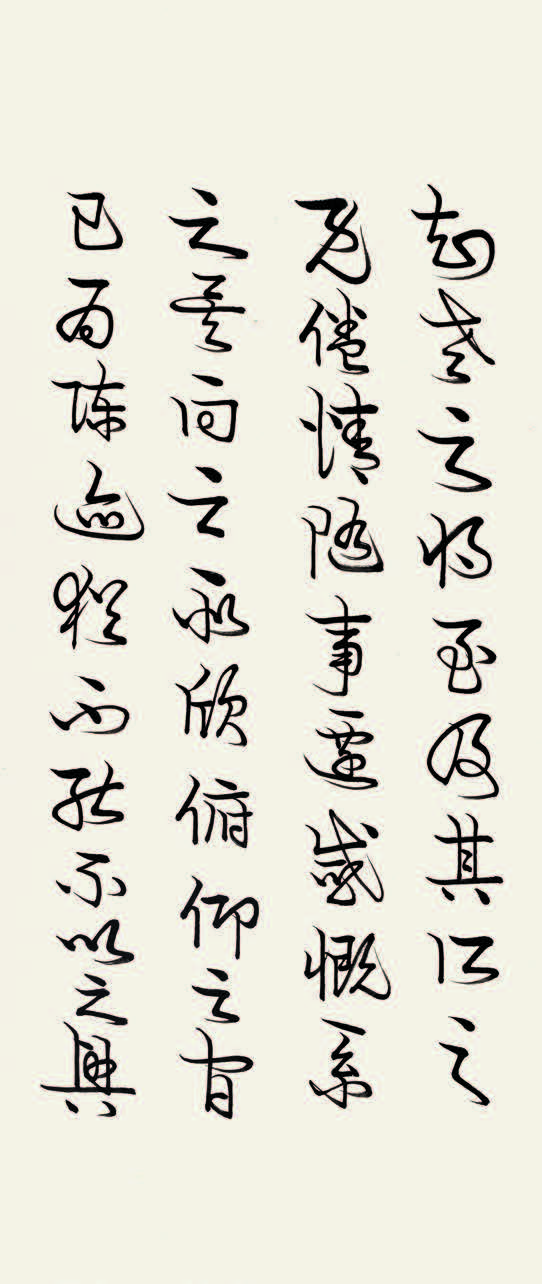 知老之將至及其所之
既倦情隨事遷感慨系
之矣向之所欣俯仰之間
已為陳迹猶不能不以之興